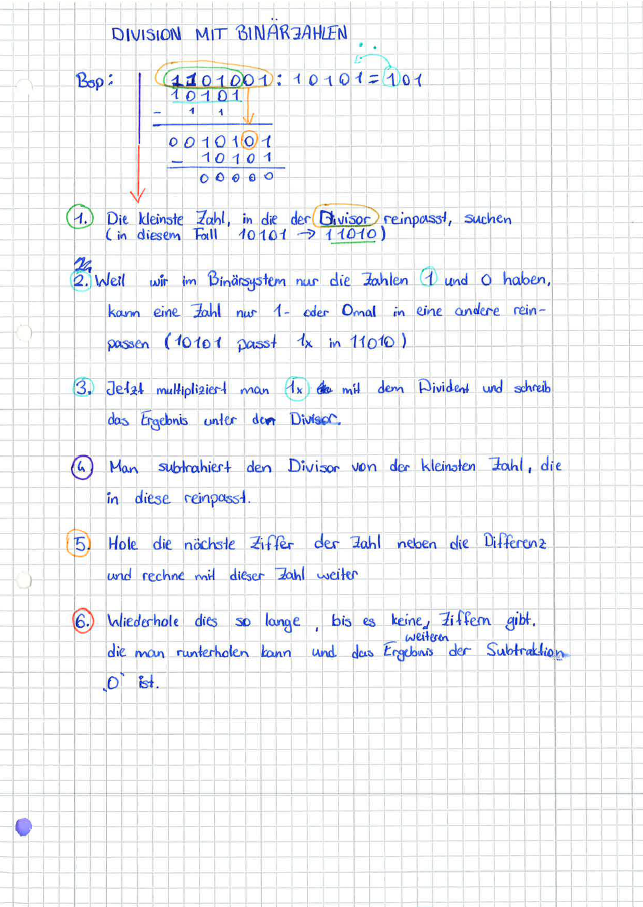 DIVISION MIT BINÄRZAHLEN
Bsp: 1101001 : 10101 = 101
10101
- 1 1
0010101
- 10101
00000
1. Die kleinste Zahl, in die der Divisor reinpasst, suchen
(in diesem Fall 10101 → 11010)
2. Weil wir im Binärsystem nur die Zahlen 1 und 0 haben,
kann eine Zahl nur 1- oder 0mal in eine andere rein-
passen (10101 passt 1x in 11010)
3. Jetzt multipliziert man 1x mit dem Divident und schreib
das Ergebnis unter den Divisor.
4 Man subtrahiert den Divisor von der kleinsten Zahl, die
in diese reinpasst.
5. Hole die nächste Ziffer der Zahl neben die Differenz
und rechne mit dieser Zahl weiter
6. Wiederhole dies so lange, bis es keine weiteren Ziffern gibt,
die man runterholen kann und das Ergebnis der Subtraktion
'0' ist.